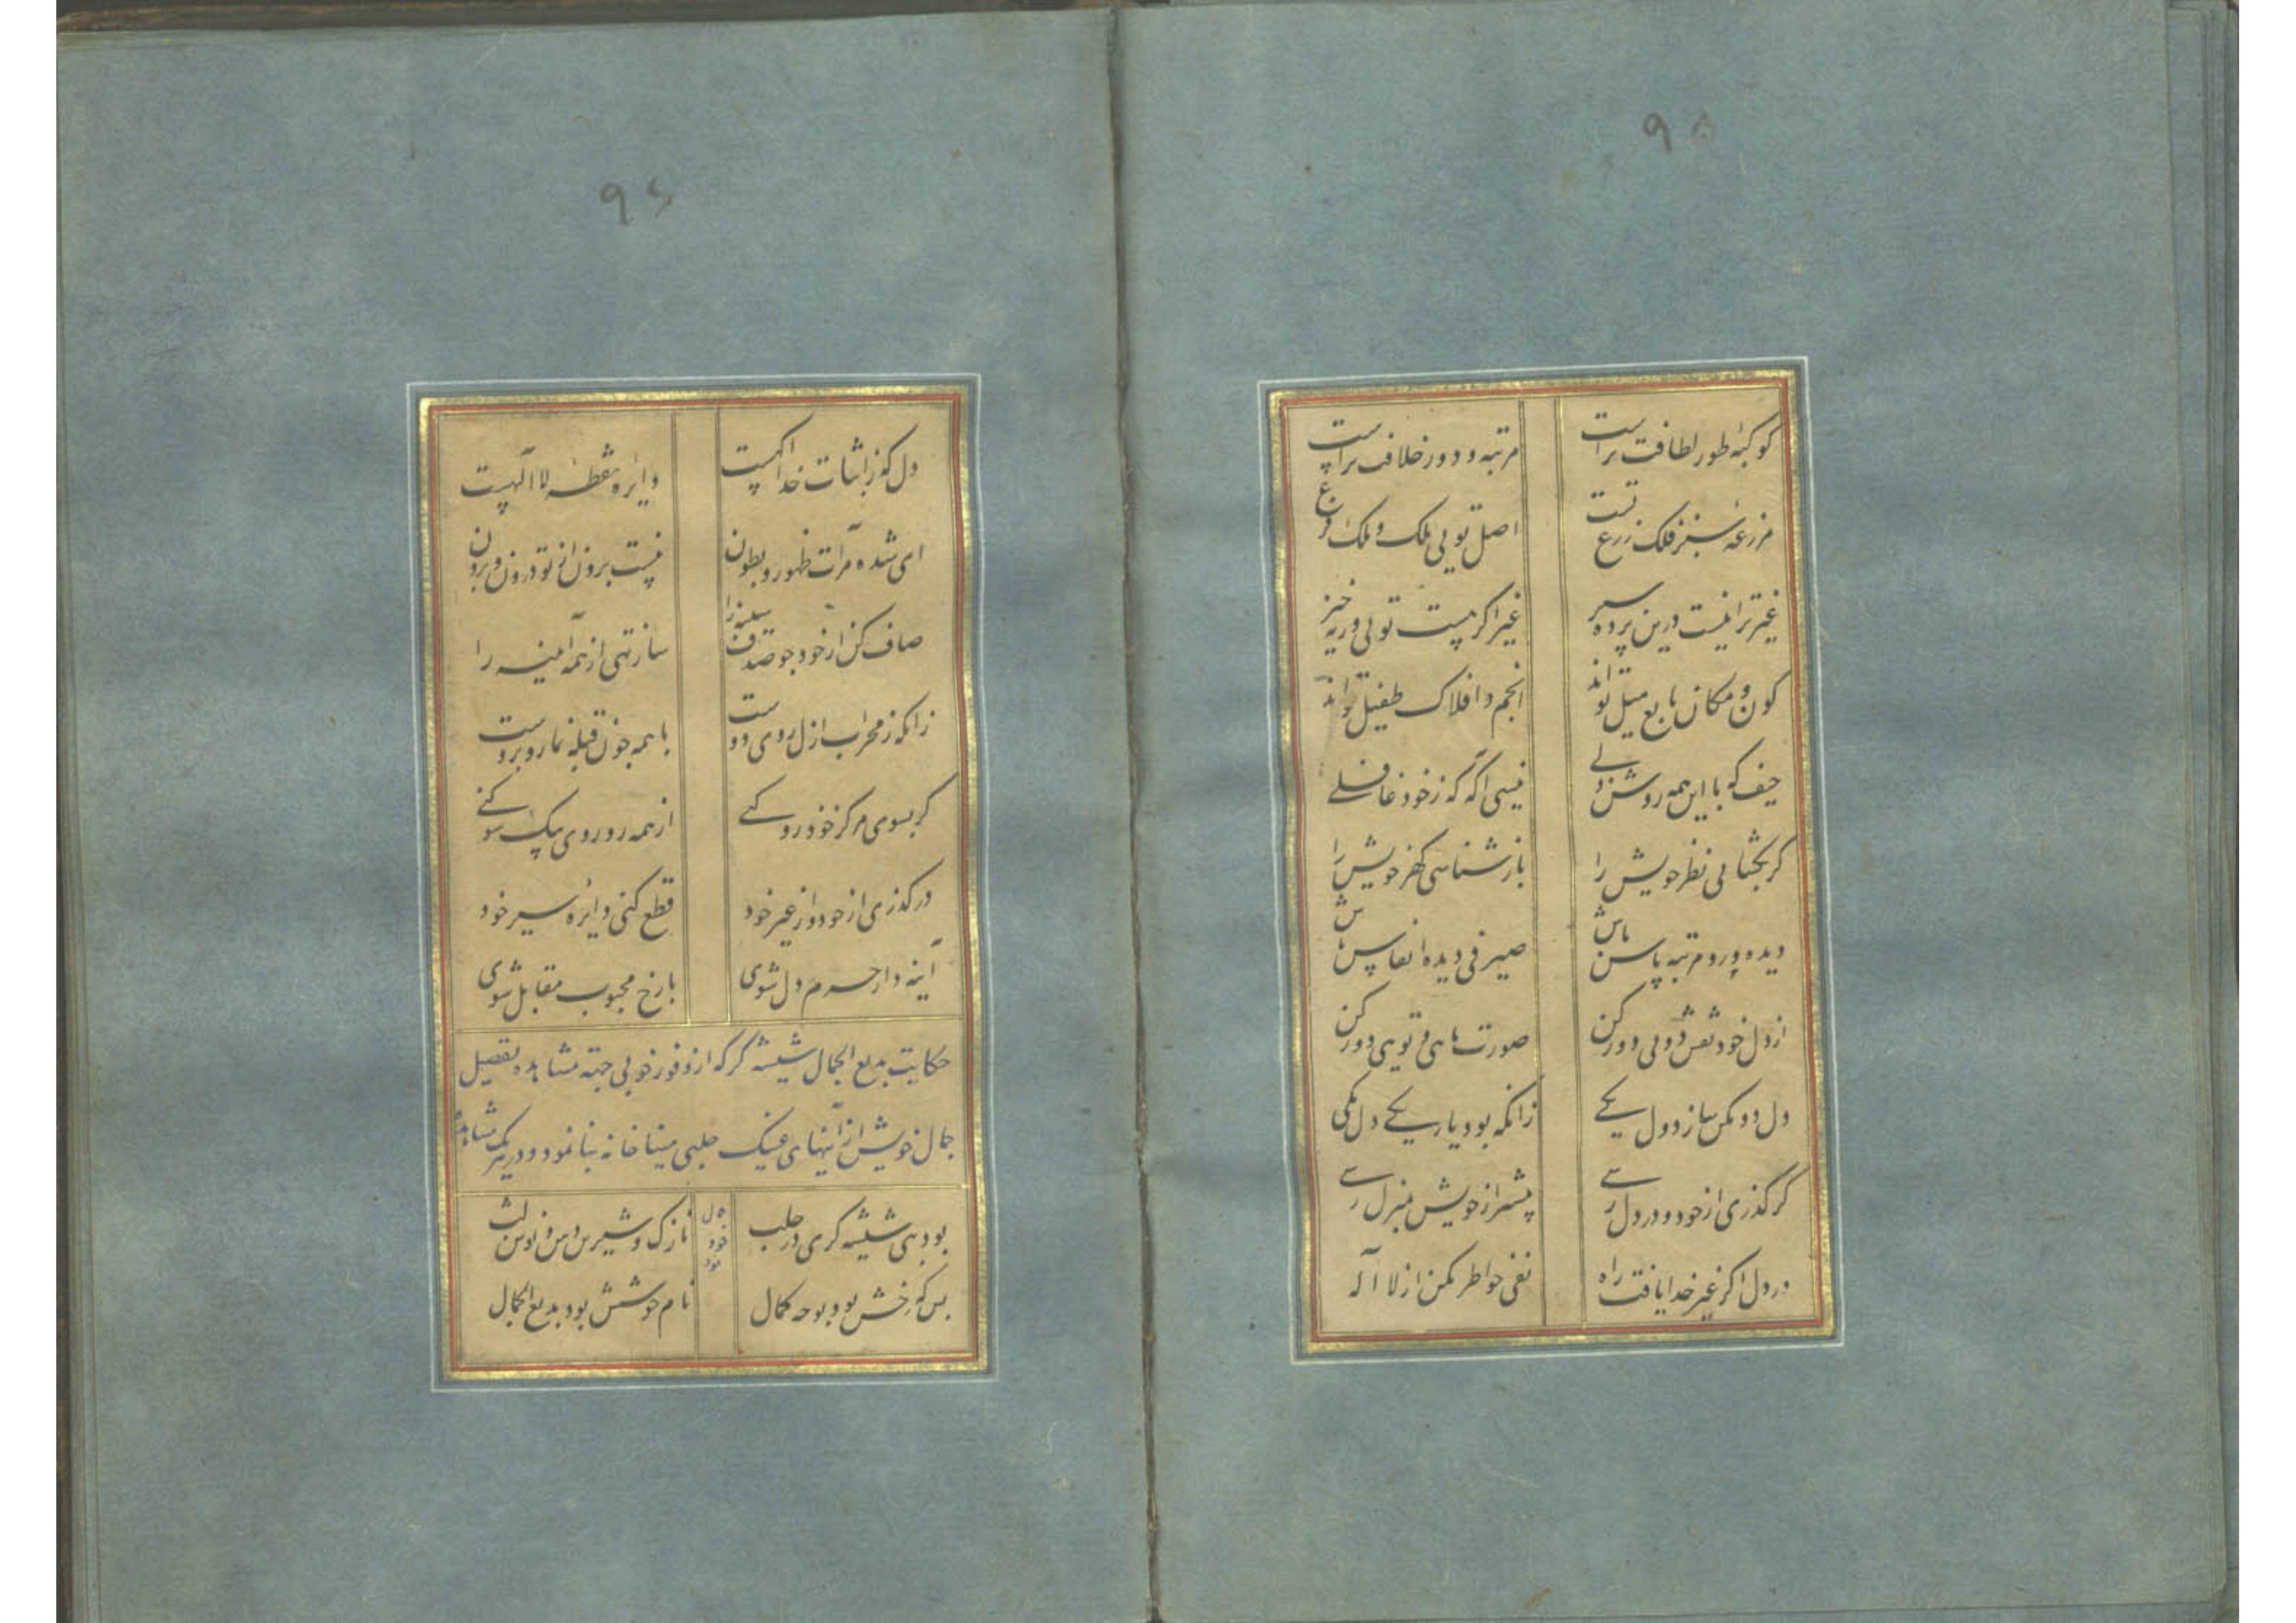 ۹۵
کوکبهٔ طور لطافت تراست
مرتبه و دور خلافت تراست
مزرعهٔ سبز فلک زرع تست
اصل تویی ملک و ملک فرع
غیر ترا نیست درین پرده سیر
غیر اگر هست تویی ور نه خیر
کون و مکان تابع میل تو اند
انجم و افلاک طفیل تو اند
حیف که با این همه روشن دلی
نیسی آگه که ز خود غافلی
گر بگشایی نظر خویش را
باز شناسی گهر خویش را
دیده ور و مرتبه باش
صیرفی دیده انفاس باش
از دل خود نقش دویی دور کن
صورت مایی و تویی دور کن
دل دو مکن ساز دو دل یکی
زانکه بود یار یکی دل یکی
گر گذری از خود و در دل رسی
پیشتر از خویش بمنزل رسی
در دل اگر غیر خدا یافت راه
نفی خواطر بکن از لا اله
۹۶
دل که ز اثبات خدا آگهست
دایره نقطهٔ لا الهست
ای شده مرآت ظهور و بطون
نیست برون از تو درون و برون
صاف کن از خود چو صدف سینه را
ساز تهی از همه آیینه را
زانکه ز محراب ازل روی دوست
با همه چون قبله نما روبروست
گر بسوی مرکز خود رو کنی
از همه رو روی بیک سو کنی
در گذری از خود و از غیر خود
قطع کنی دایرهٔ سیر خود
آینه دار حرم دل شوی
با رخ محبوب مقابل شوی
حکایت بدیع الجمال شیشه گر که از وفور خوبی جهته مشاهده تفصیل
جمال خویش از آینهای عینک حلبی مینا خانه بنا نمود و در یک مشاهده
بود بتی شیشه گری در حلب
نازک و شیرین و نوش لب
بس که رخش بود بوجه کمال
نام خوشش بود بدیع الجمال